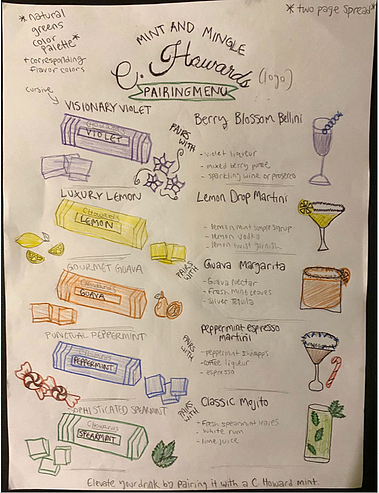 *natural
greens
color
palette*
+ corresponding
flavor colors
cursive
* two page spread*
MINT AND MINGLE
C. Howards
(logo)
PAIRING MENU
VISIONARY VIOLET
VIOLET
PAIRS
WITH
Berry Blossom Bellini
- violet liqueur
- mixed berry puree
- sparkling wine or prosecco
LUXURY LEMON
LEMON
PAIRS
WITH
Lemon Drop Martini
- lemon mint simple syrup
- lemon vodka
- lemon twist garnish
GOURMET GUAVA
GUAVA
Guava Margarita
- Guava Nectar
- Fresh mint leaves
- silver tequila
PUNCTUAL PEPPERMINT
PEPPERMINT
PAIRS
WITH
Peppermint espresso
martini
- peppermint schnapps
- coffee liqueur
- espresso
SOPHISTICATED SPEARMINT
SPEARMINT
PAIRS
WITH
Classic Mojito
- Fresh spearmint leaves
- white rum
- lime juice
Elevate your drink by pairing it with a C Howard mint.